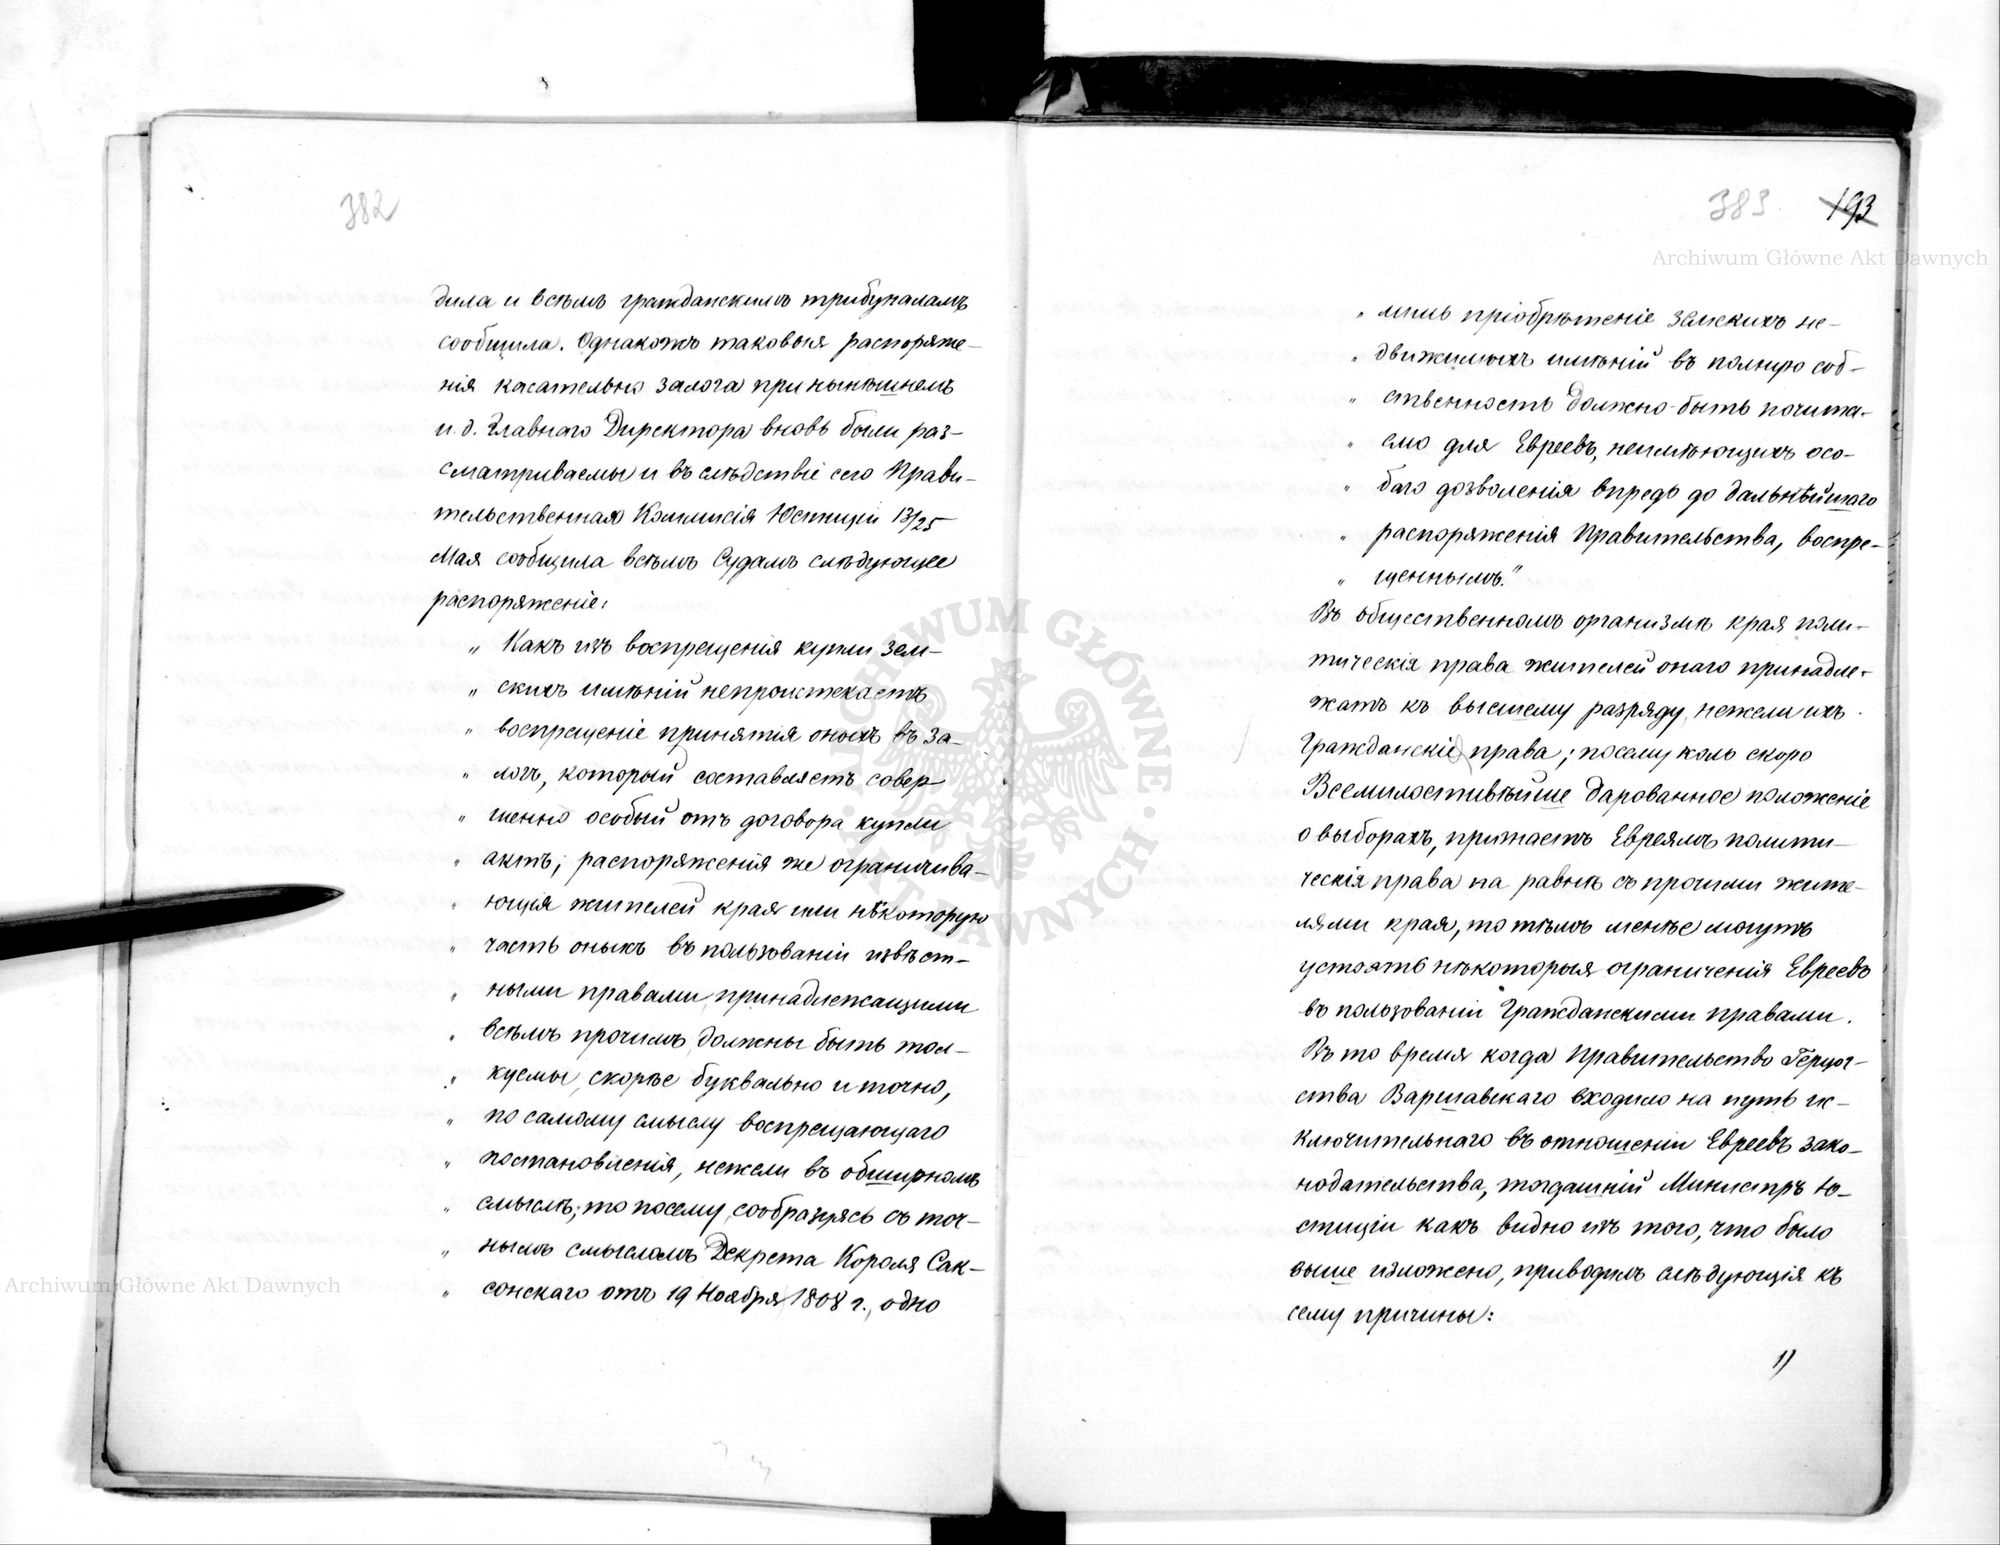 382
дила и всѣмъ гражданскимъ трибуналамъ
сообщила. Однакожъ таковыя распоряже-
нія касательно залога при нынѣшнемъ
и. д. Главнаго Директора вновь были раз-
сматриваемы и въ слѣдствіе сего Прави-
тельственная Коммисія Юстиціи 13/25
Мая сообщила всѣмъ Судамъ слѣдующее
распоряженіе:
„ Какъ изъ воспрещенія купли зем-
„ скихъ имѣній непроистекаетъ
„ воспрещеніе принятія оныхъ въ за-
„ логъ, который составляетъ совер-
„ шенно особый отъ договора купли
„ актъ; распоряженія же ограничива-
„ ющія жителей края или нѣкоторую
„ часть оныхъ въ пользованіи извѣст-
„ ными правами принадлежащими
„ всѣмъ прочимъ, должны быть тол-
„ куемы, скорѣе буквально и точно,
„ по самому смыслу воспрещающаго
„ постановленія, нежели въ обширномъ
„ смыслѣ; то посему, сообразуясь съ точ-
„ нымъ смысломъ Декрета Короля Сак-
„ сонскаго отъ 19 Ноября 1808 г., одно
383 193
„ лишь пріобрѣтеніе земскихъ не-
„ движимыхъ имѣній въ полную соб-
„ ственность должно быть почита-
„ емо для Евреевъ, неимѣющихъ осо-
„ баго дозволенія впредь до дальнѣйшаго
„ распоряженія Правительства, воспре-
„ щеннымъ."
Въ общественномъ организмѣ края поли-
тическія права жителей онаго принадле-
жатъ къ высшему разряду, нежели ихъ
Гражданскія права; посему коль скоро
Всемилостивѣйше дарованное положеніе
о выборахъ, признаетъ Евреямъ полити-
ческія права на равнѣ съ прочими жите-
лями края, то тѣмъ менѣе могутъ
устоять нѣкоторыя ограниченія Евреевъ
въ пользованіи Гражданскими правами.
Въ то время когда Правительство Герцог-
ства Варшавскаго входило на путь ис-
ключительнаго въ отношеніи Евреевъ зако-
нодательства, тогдашній Министръ Ю-
стиціи какъ видно изъ того, что было
выше изложено, приводилъ слѣдующія къ
сему причины:
1)
Archiwum Główne Akt Dawnych
Archiwum Główne Akt Dawnych
ARCHIWUM GŁÓWNE AKT DAWNYCH